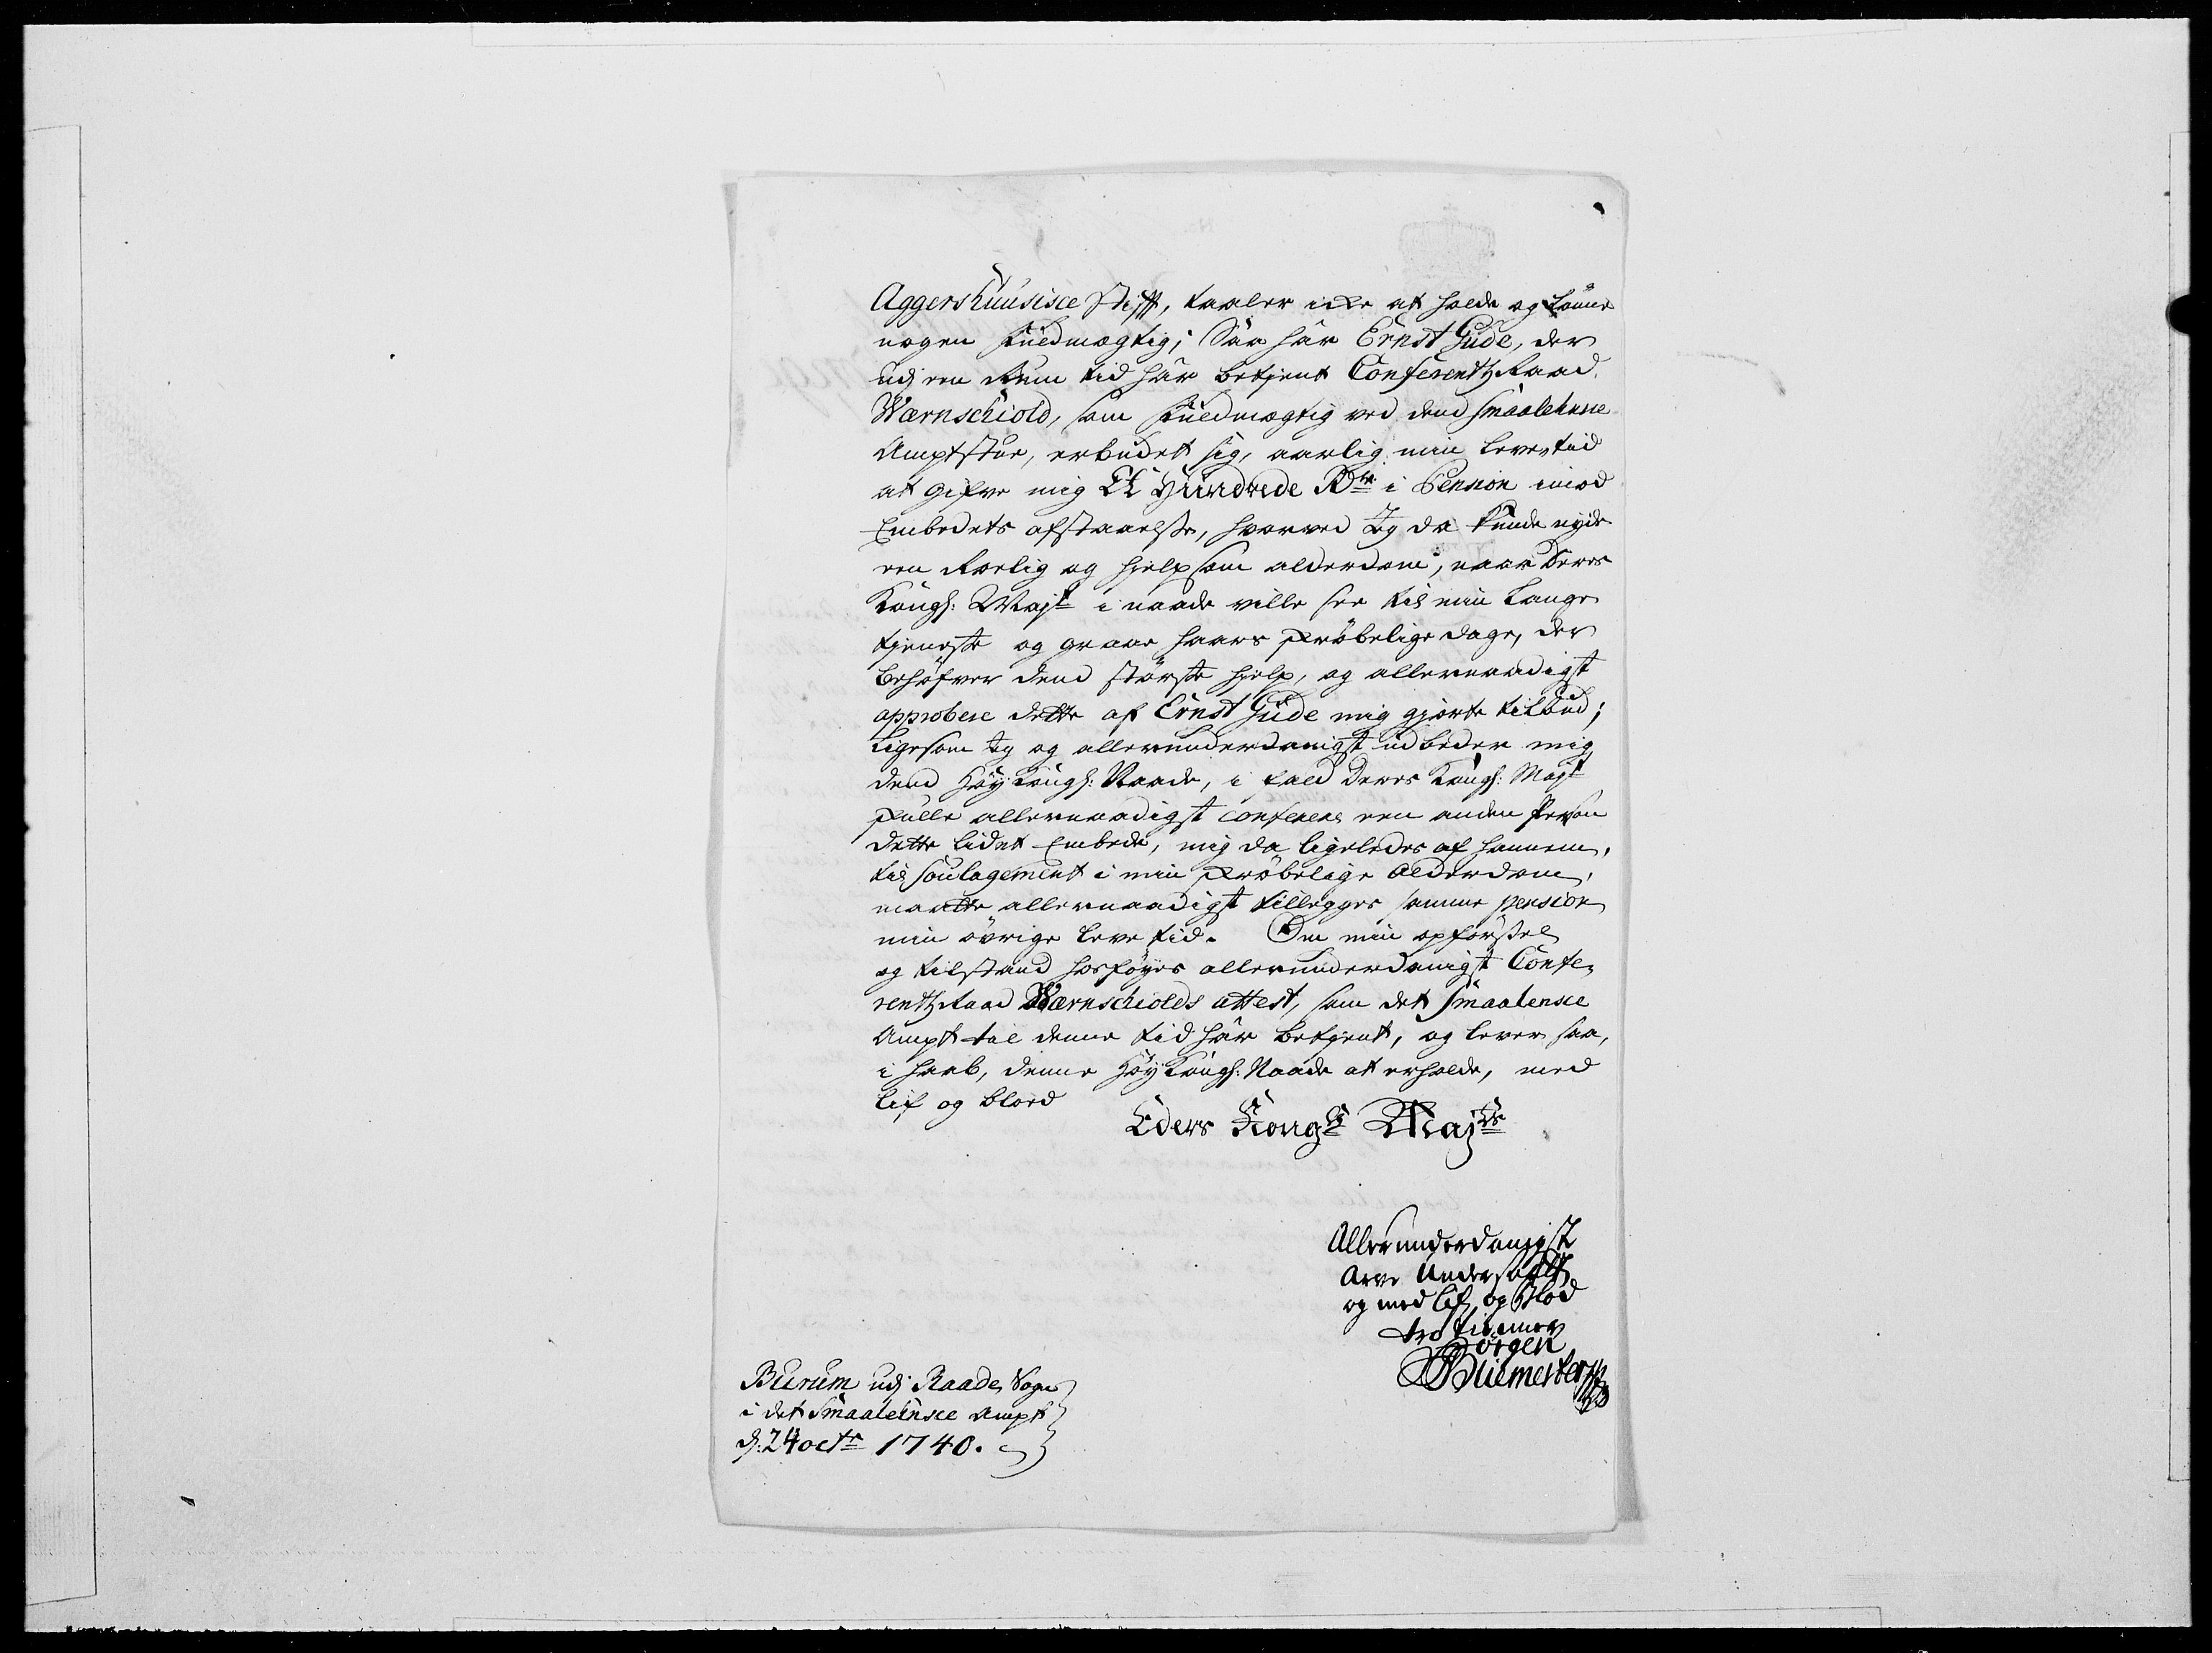 Aggershuusisce Stift, taaler icke at holde og lönne
nogen Fuldmægtig; Saa har Ernst Gude, der
udj een Rum tid har betjent Conferentz Raad
Wærnschiold, som Fuldmægtig ved dend Smaalehnsce
Amptstue, erbudet sig, aarlig min levestid
at gifve mig Et Hundrede Rdr i Pension imod
Embedets afstaaelsse, hvorved Jeg da kunde nyde
een Roelig og hjelpsom alderdom, naar Deres
Kongl: Majt i naade ville see til min lange
tjeneste og graae haars skröbelige dage, der
behöfver dend störste hjelp, og allernaadigst
approbere dette af Ernst Gude mig gjorte tilbud;
ligesom Jeg og allerunderdanigst udbeder mig
dend Höy Kongl: Naade, i fald Deres Kongl: Mayt
skulle allernaadigst conferere een anden Person
dette lidet Embede, mig da ligeledes af hannem,
til soulagement i min skröbelige Alderdom,
maatte allernaadigst tillegges samme pension
min övrige leve tid. Om min opförssel
og tilstand hosföyes allerunderdanigst Confe-
rentz Raad Wærnschiolds attest, som det Smaalensce
Ampt til denne tid har betjent, og lever saa,
i haab, denne Höy Kongl: Naade at erholde, med
lif og blod
Eders Kongl Majts
Allerunderdanigst
Arve Undersaatt
og med lif og Blod
tro tienner
Jörgen
Burum udj Raade Sogn
i det Smaalehnsce Ampt
d: 24 octr 1740.